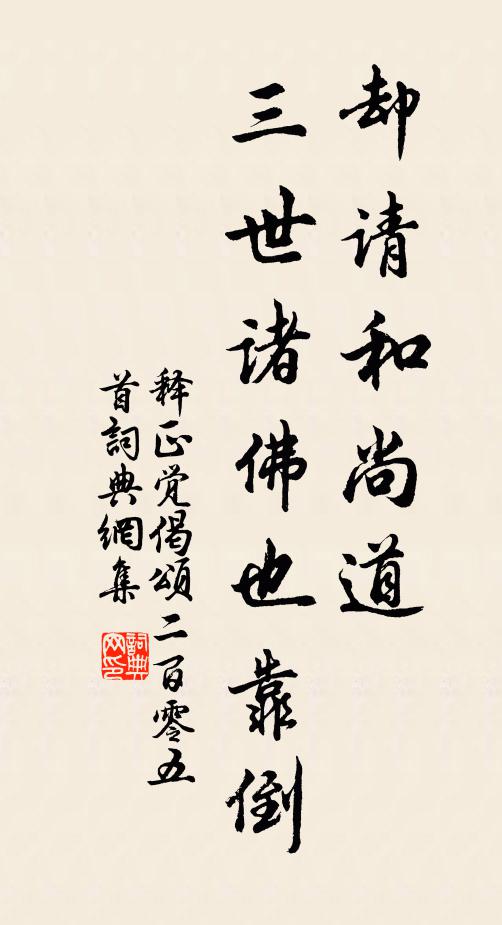 却请和尚道
三世诸佛也靠倒
释正觉偈颂二百零五
首词典网集
词典网印